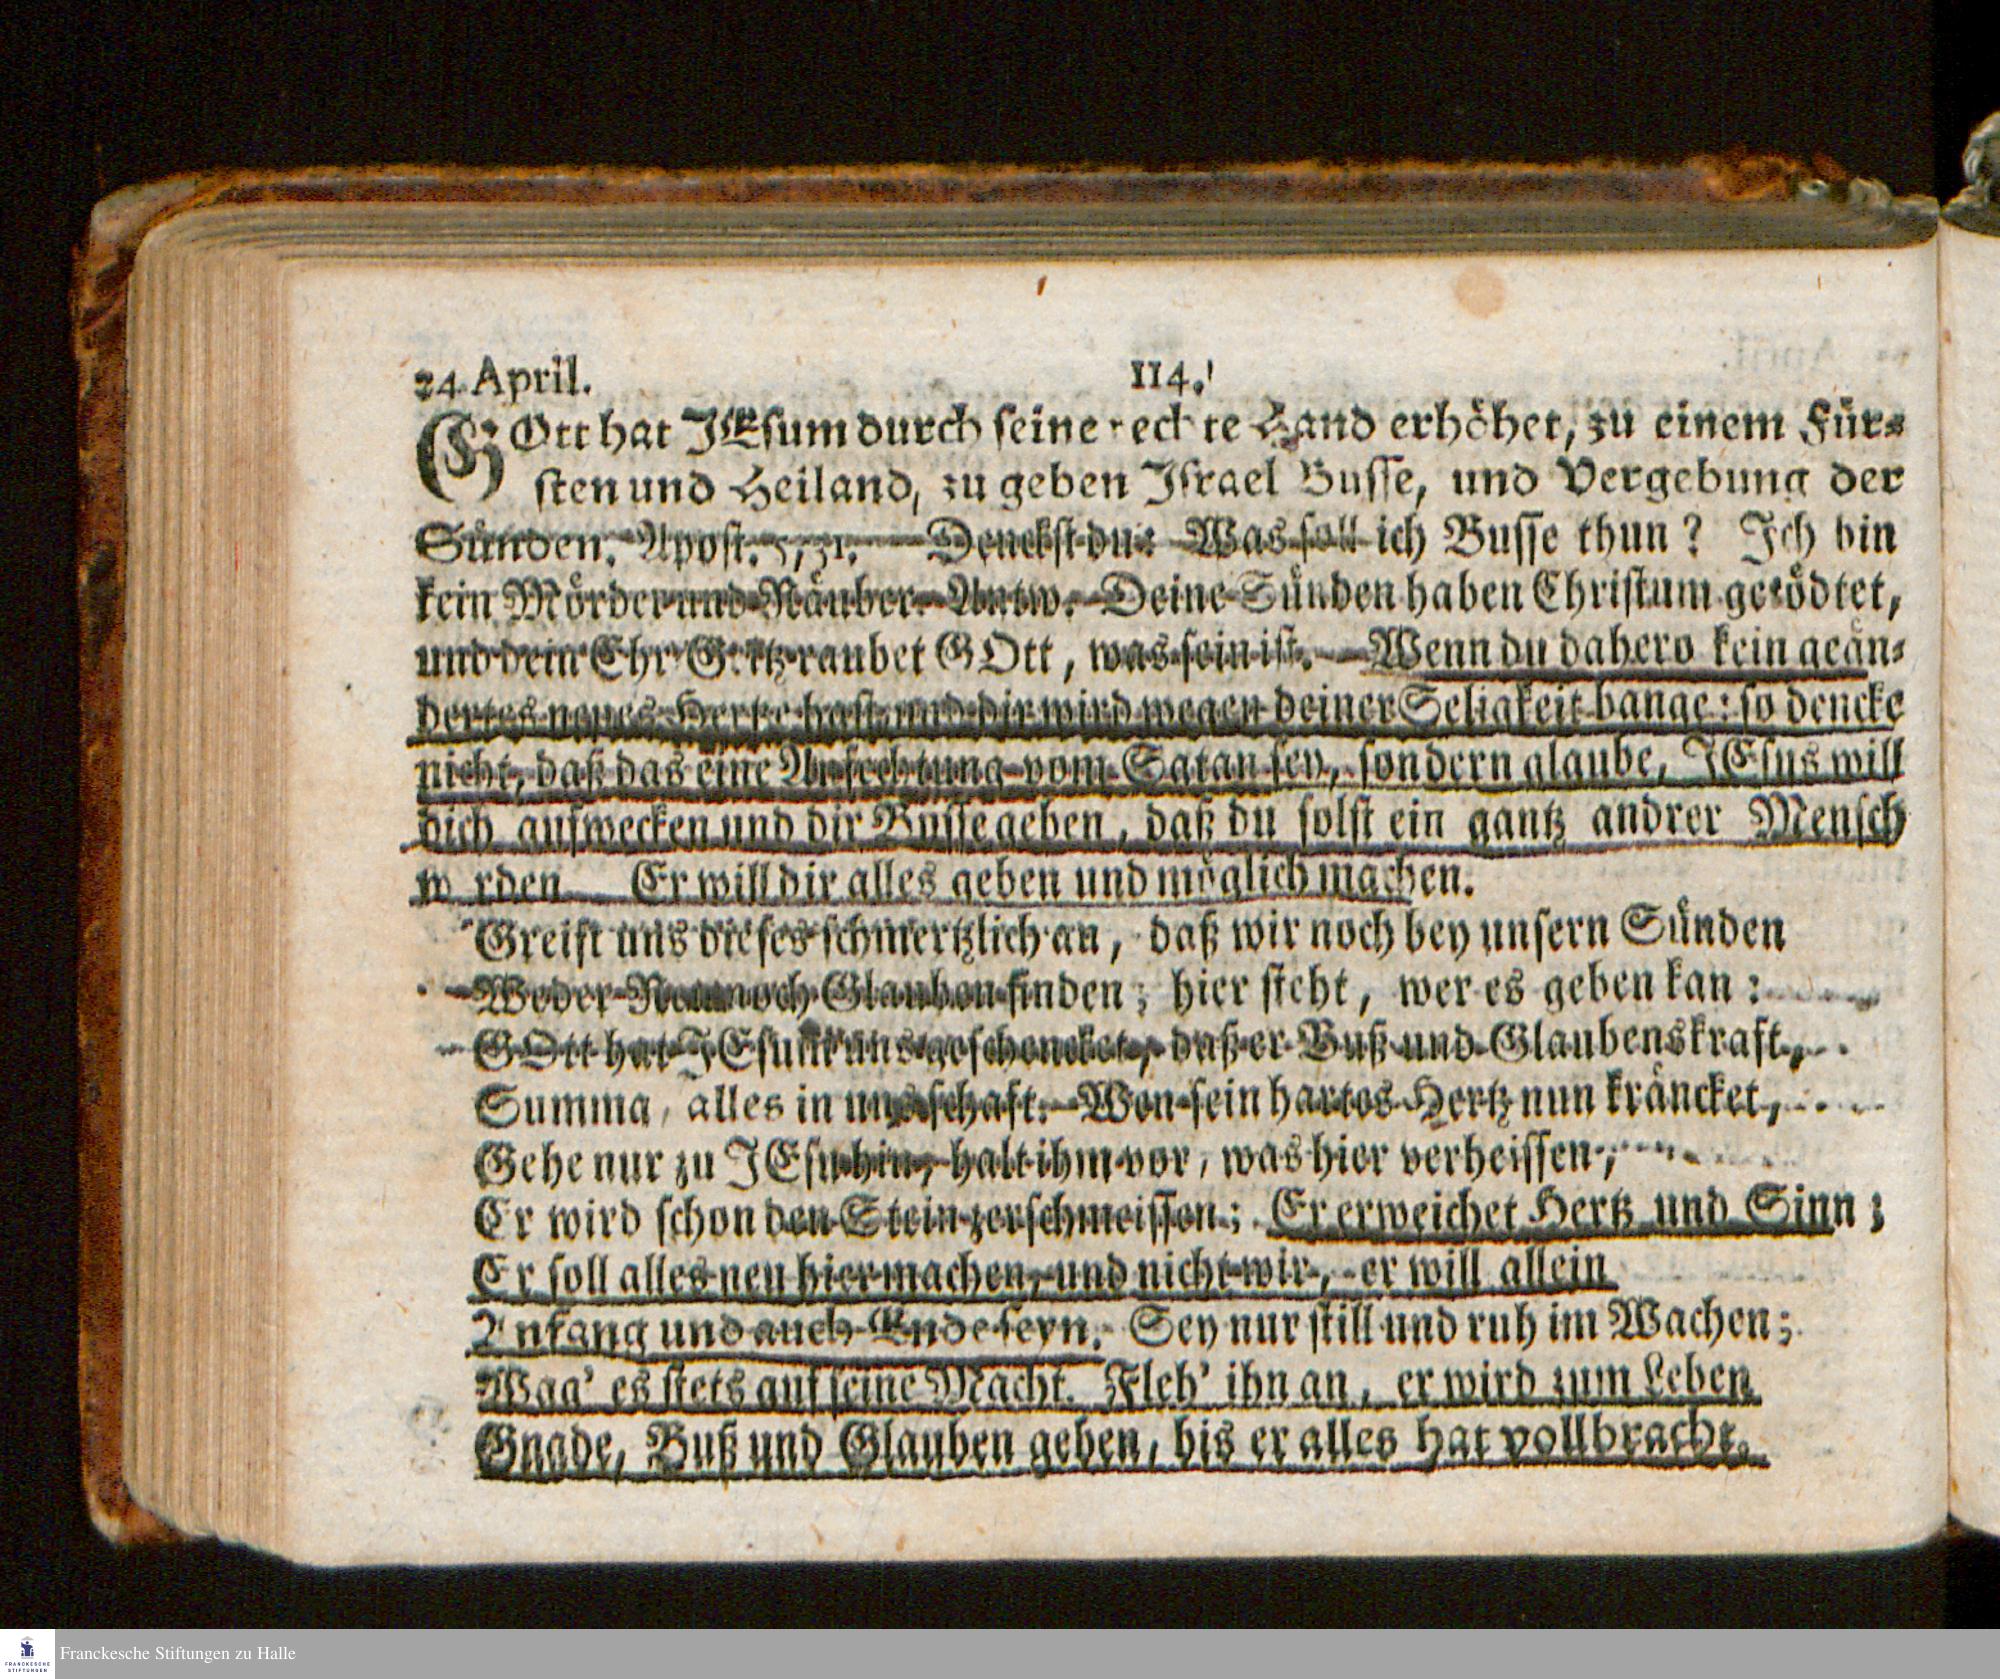 24. April. 114.
GOtt hat JEsum durch seine rechte Hand erhöhet, zu einem Für-
sten und Heiland, zu geben Israel Busse, und Vergebung der
Sünden. Apost. 5, 31. Denckst du: Was soll ich Busse thun? Ich bin
kein Mörder und Räuber. Antw. Deine Sünden haben Christum getödtet,
und dein Ehr-Geitz raubet GOtt, was sein ist. Wenn du dahero kein geän-
dertes neues Hertze hast, und dir wird wegen deiner Seligkeit bange: so dencke
nicht, daß das eine Anfechtung vom Satan sey, sondern glaube, JEsus will
dich aufwecken und dir Busse geben, daß du solst ein gantz andrer Mensch
werden. Er will dir alles geben und möglich machen.
Greift uns dieses schmertzlich an, daß wir noch bey unsern Sünden
Weder Reu noch Glauben finden; hier steht, wer es geben kan:
GOtt hat JEsum uns geschencket, daß er Buß und Glaubenskraft,
Summa, alles in uns schaft. Wen sein hartes Hertz nun kräncket,
Gehe nur zu JEsu hin, halt ihm vor, was hier verheissen,
Er wird schon den Stein zerschmeissen; Er erweichet Hertz und Sinn;
Er soll alles neu hier machen, und nicht wir, er will allein
Anfang und auch Ende seyn. Sey nur still und ruh im Wachen;
Wag' es stets auf seine Macht. Fleh' ihn an, er wird zum Leben
Gnade, Buß und Glauben geben, bis er alles hat vollbracht.
FRANCKESCHE
STIFTUNGEN
Franckesche Stiftungen zu Halle